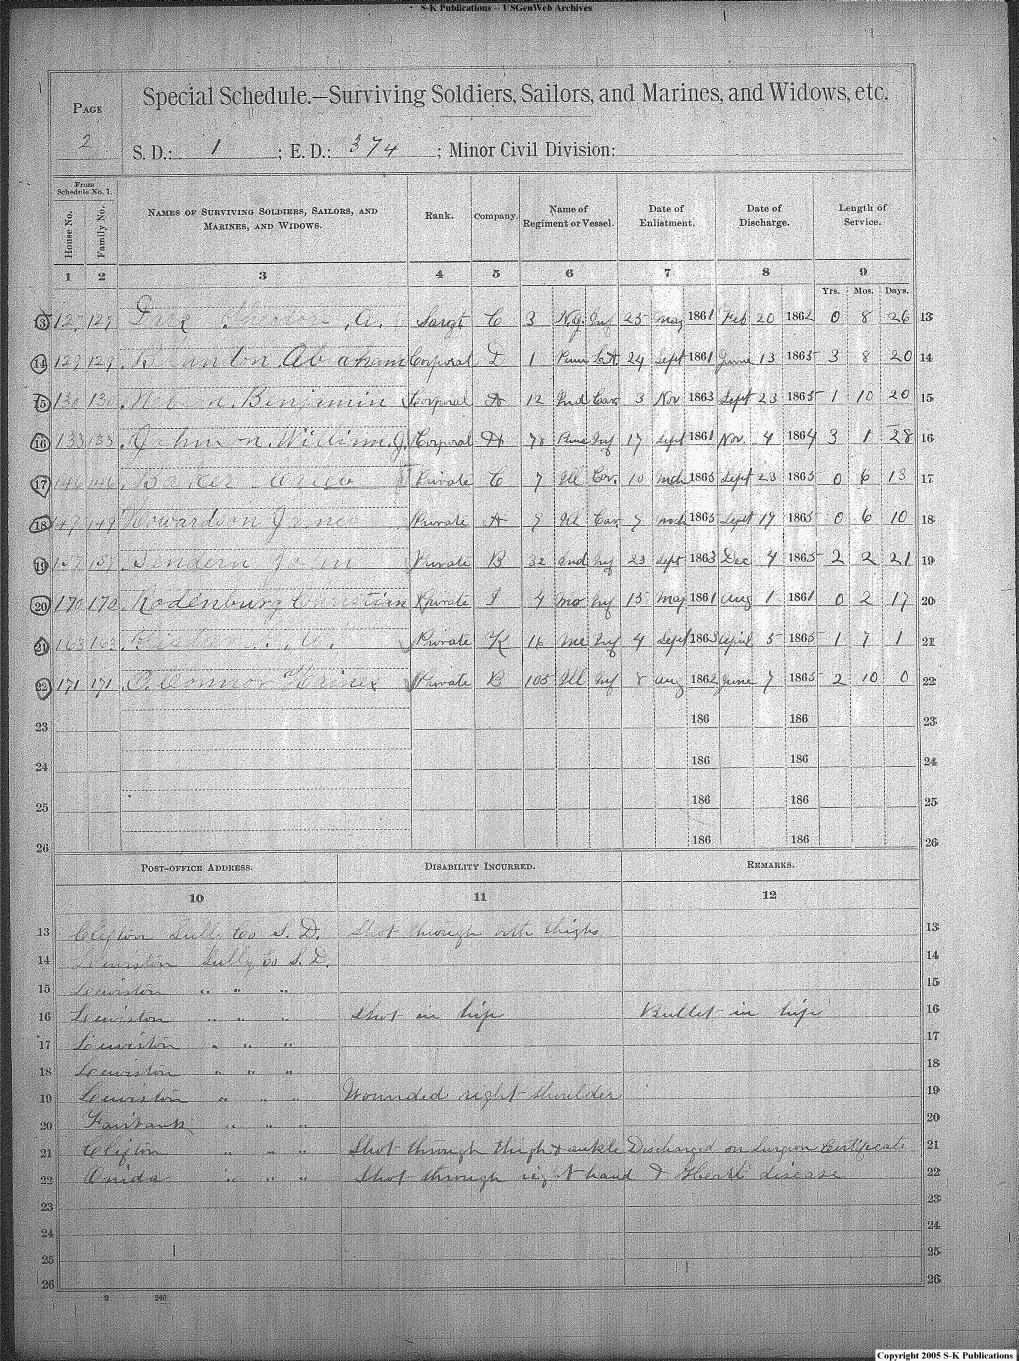 S-K Publications -- USGenWeb Archives
Page
2
Special Schedule.—Surviving Soldiers, Sailors, and Marines, and Widows, etc.
S. D.: 1 ; E. D.: 374 ; Minor Civil Division:
From Schedule No. 1.
House No. Family No. Names of Surviving Soldiers, Sailors, and Marines, and Widows. Rank. Company. Name of Regiment or Vessel. Date of Enlistment. Date of Discharge. Length of Service.
1 2 3 4 5 6 7 8 9
Yrs. Mos. Days.
13 127 127 A. Sargt C 3 N.Y. Inf 25 May 1861 Feb 20 1862 0 8 26 13
14 129 129 Abraham Corporal D 1 24 Sept 1861 June 13 1865 3 8 20 14
15 130 130 Benjamin Corporal A 12 Ind Cav 3 Nov 1863 Sept 23 1865 1 10 20 15
16 133 133 William J. Corporal 78 Inf 17 Sept 1861 Nov. 4 1864 3 1 28 16
17 146 146 Baker Private C 7 Ill Cav. 10 Mch 1865 Sept 23 1865 0 6 13 17
18 149 149 Howardson James Private A 9 Ill Cav 9 Mch 1865 Sept 19 1865 0 6 10 18
19 157 157 John Private B 32 Ind Inf 23 Sept 1863 Dec 4 1865 2 2 21 19
20 170 170 Rodenburg Christian Private I 4 Mo Inf 15 May 1861 Aug 1 1861 0 2 17 20
21 163 163 Private K 16 Me Inf 4 Sept 1863 April 5 1865 1 7 1 21
22 171 171 O'Connor Private B 105 Ill Inf 8 Aug 1862 June 7 1865 2 10 0 22
23 186 186 23
24 186 186 24
25 186 186 25
26 186 186 26
Post-office Address. Disability Incurred. Remarks.
10 11 12
13 Clifton Sully Co S. D. Shot through both thighs 13
14 Lewiston Sully Co S. D. 14
15 Lewiston " " " 15
16 Lewiston " " " Shot in hip Bullet in hip 16
17 Lewiston " " " 17
18 Lewiston " " " 18
19 Lewiston " " " Wounded right shoulder 19
20 Fairbank " " " 20
21 Clifton " " " Shot through thigh & ankle Discharged on Surgeon Certificate 21
22 Onida " " " Shot through right hand & Heart disease 22
23 23
24 24
25 25
26 26
2 240
Copyright 2005 S-K Publications